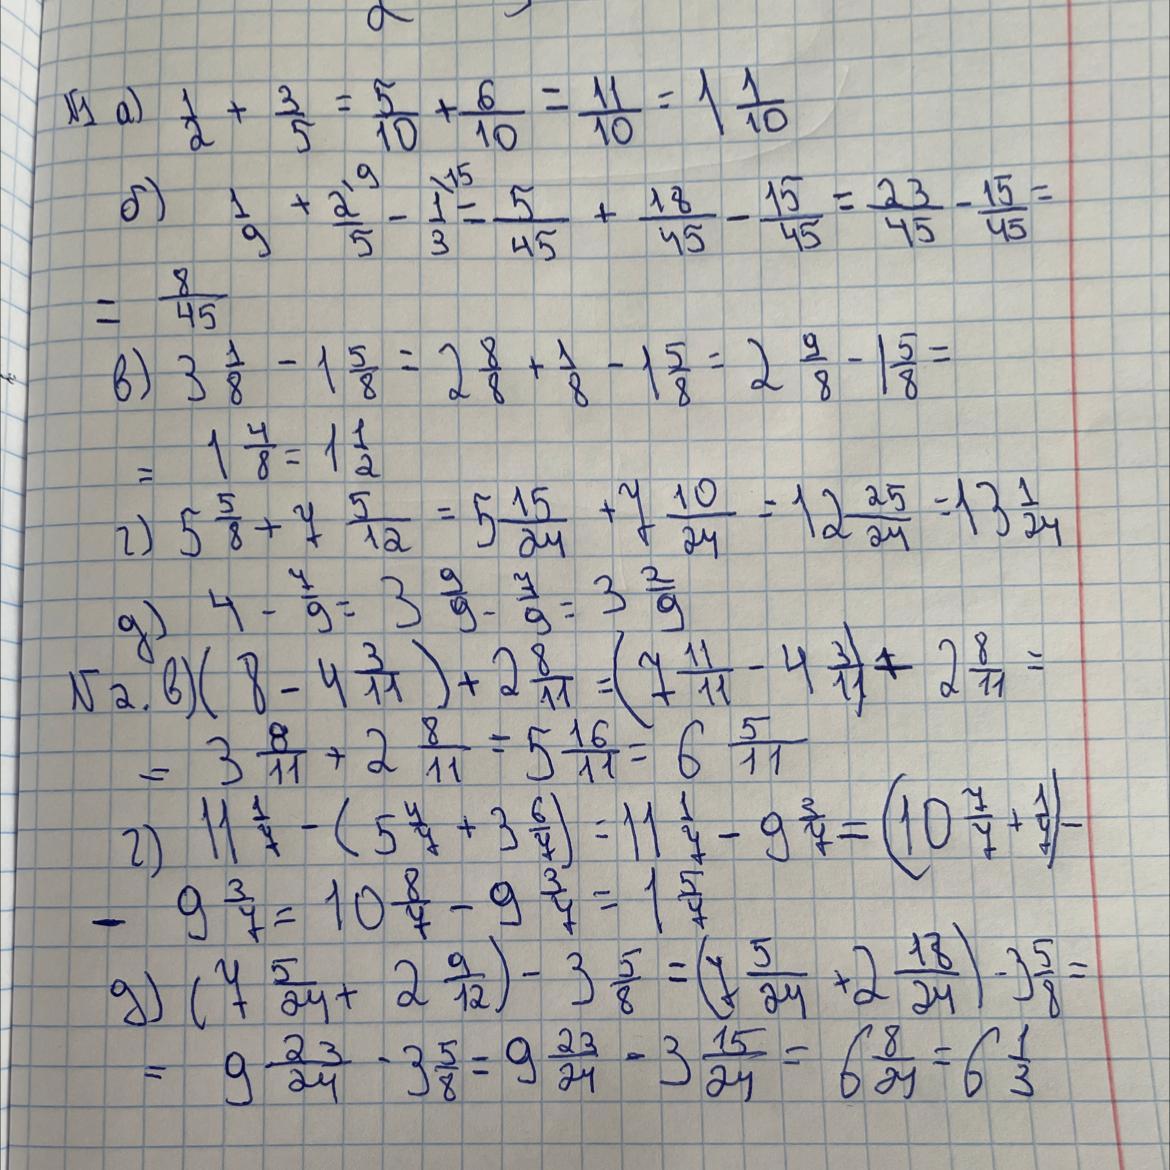 №1 а) 1/2 + 3/5 = 5/10 + 6/10 = 11/10 = 1 1/10
б) 1/9 + 2\9/5 - 1\15/3 = 5/45 + 18/45 - 15/45 = 23/45 - 15/45 =
= 8/45
в) 3 1/8 - 1 5/8 = 2 8/8 + 1/8 - 1 5/8 = 2 9/8 - 1 5/8 =
= 1 4/8 = 1 1/2
г) 5 5/8 + 7 5/12 = 5 15/24 + 7 10/24 = 12 25/24 = 13 1/24
д) 4 - 7/9 = 3 9/9 - 7/9 = 3 2/9
№2. в) (8 - 4 3/11) + 2 8/11 = (7 11/11 - 4 3/11) + 2 8/11 =
= 3 8/11 + 2 8/11 = 5 16/11 = 6 5/11
г) 11 1/7 - (5 4/7 + 3 6/7) = 11 1/7 - 9 3/7 = (10 7/7 + 1/7) -
- 9 3/7 = 10 8/7 - 9 3/7 = 1 5/7
д) (7 5/24 + 2 9/12) - 3 5/8 = (7 5/24 + 2 18/24) - 3 5/8 =
= 9 23/24 - 3 5/8 = 9 23/24 - 3 15/24 = 6 8/24 = 6 1/3